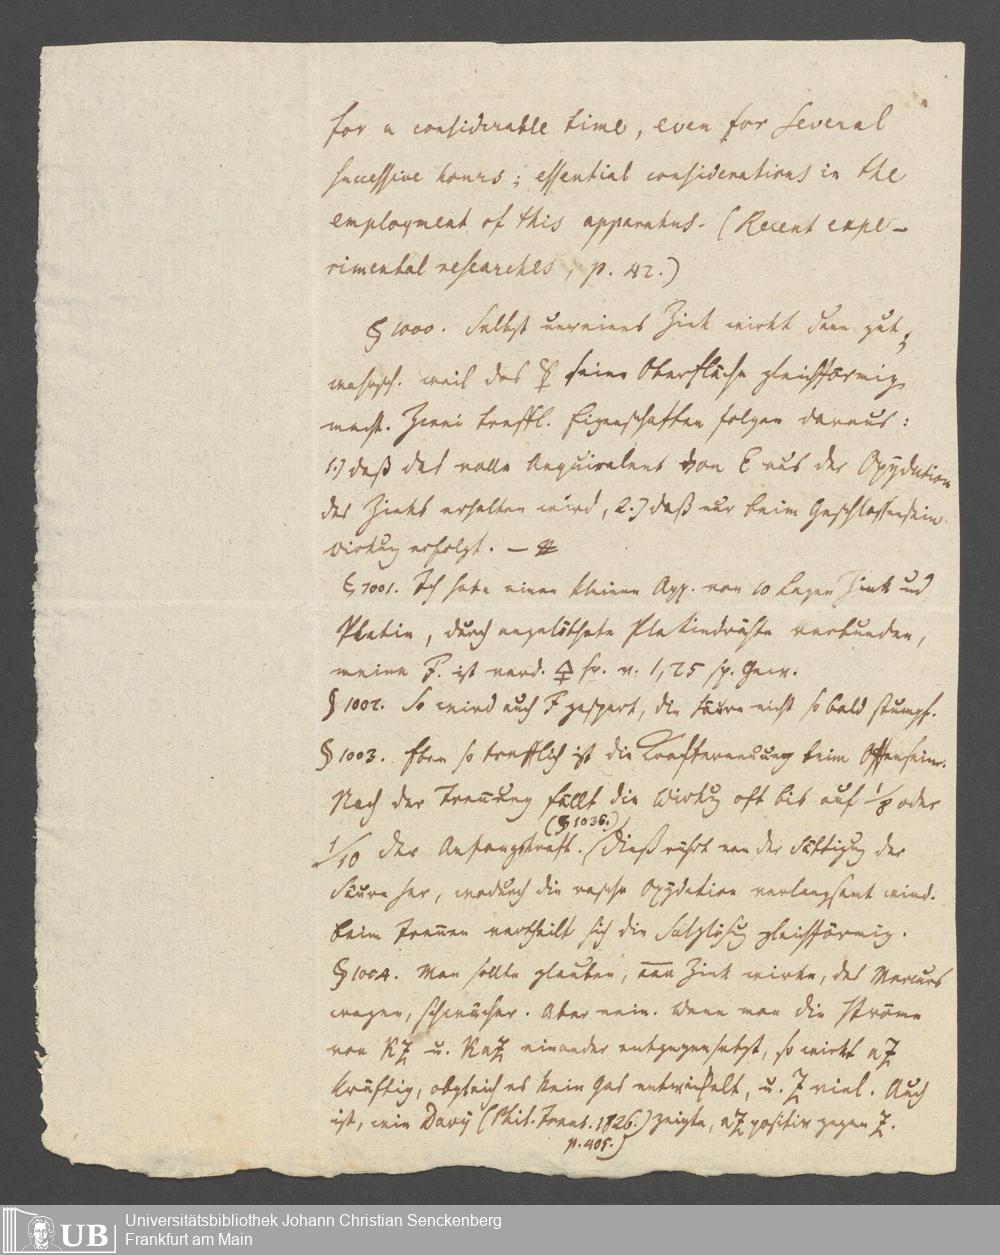 for a considerable time, even for several
successive hours; essential considerations in the
employment of this apparatus. (Recent expe-
rimental researches, p. 42.)
§ 1000. Selbst unreines Zink wirkt dann gut,
wahrsch. weil das ☿ seine Oberfläche gleichförmig
macht. Zwei treffl. Eigenschaften folgen daraus:
1.) daß das volle Aequivalent von E aus der Oxydation
des Zinks erhalten wird, 2.) daß nur beim Geschlossensein
Wirkung erfolgt. —
§ 1001. Ich habe einen kleinen App. von 10 Lagen Zink und
Platin, durch angelöthete Platindrähte verbunden,
meine F. ist verd. sp. v. 1,25 sp. Gew.
§ 1002. So wird auch F gespart, die Säure nicht so bald stumpf.
§ 1003. Eben so trefflich ist die Krafterneuung beim Offensein.
Nach der Trennung fällt die Wirkg oft bis auf 1/8 oder
(§ 1036.)
1/10 der Anfangskraft. (Dieß rührt von der Sättigung der
Säure her, wodurch die rasche Oxydation verlangsamt wird.
beim Trennen vertheilt sich die Salzlösg gleichförmig.
§ 1004. Man sollte glauben, Zink wirke, des Mercurs
wegen, schwächer. Aber nein. Wenn man die Ströme
von u. einander entgegensetzt, so wirkt
kräftig, obgleich es kein Gas entwickelt, u. viel. Auch
ist, wie Davy (Phil. Trans. 1826.) zeigte, positiv gegen
p. 405.)
Universitätsbibliothek Johann Christian Senckenberg
Frankfurt am Main
UB